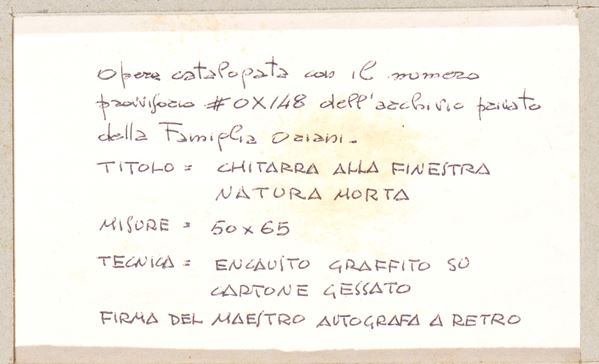 Opera catalogata con il numero
provvisorio #OX148 dell'archivio privato
della Famiglia Oriani.
TITOLO = CHITARRA ALLA FINESTRA
NATURA MORTA
MISURE = 50x65
TECNICA = ENCAUSTO GRAFFITO SU
CARTONE GESSATO
FIRMA DEL MAESTRO AUTOGRAFA A RETRO